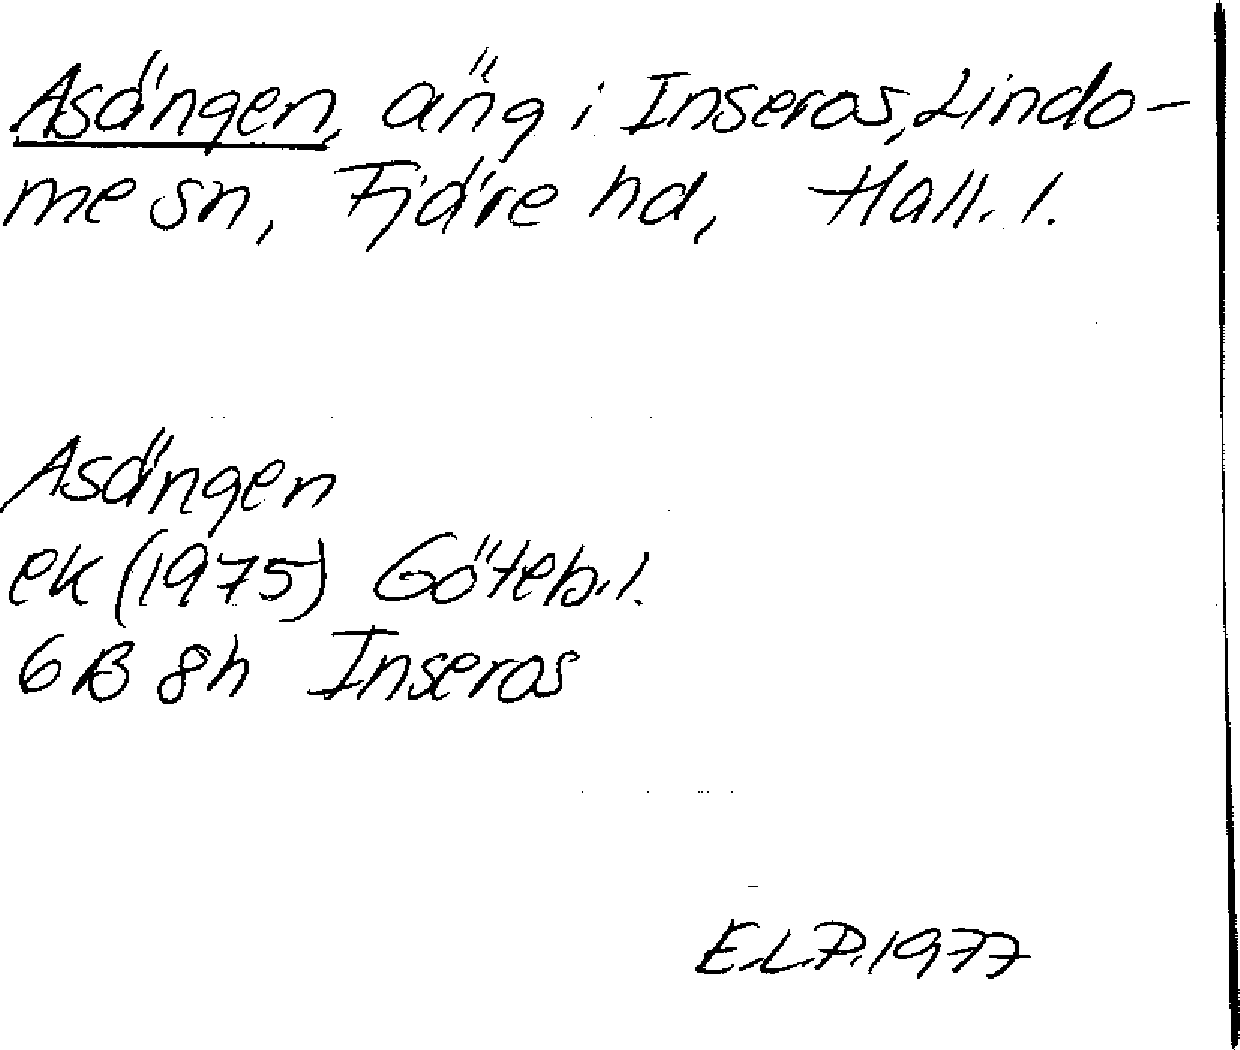 Asängen, äng i Inseros, Lindo-
me sn, Fjäre hd, Hall. l.
Asängen
ek (1975) Göteb. l.
6B 8h Inseros
E.L.P. 1977